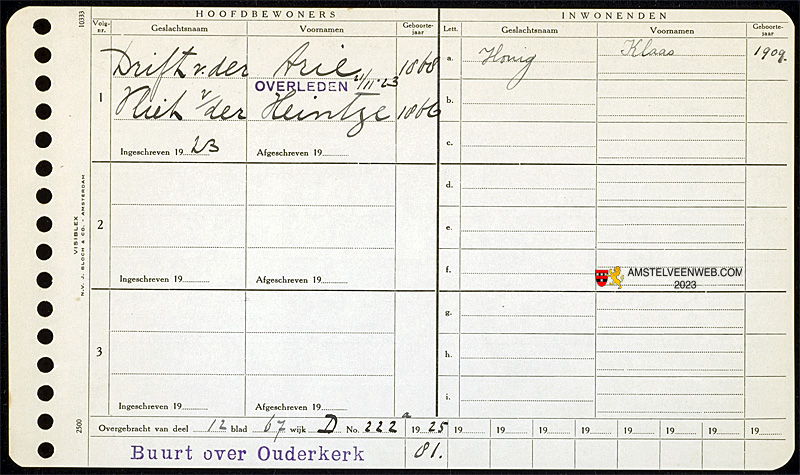 HOOFDBEWONERS
Volg-nr. Geslachtsnaam Voornamen Geboorte-jaar
1 Drift v. der Arie 1868
OVERLEDEN 21/11-23
Vliet v/der Heintje 1866
Ingeschreven 19 23 Afgeschreven 19
2
Ingeschreven 19 Afgeschreven 19
3
Ingeschreven 19 Afgeschreven 19
INWONENDEN
Lett. Geslachtsnaam Voornamen Geboorte-jaar
a. Honig Klaas 1909.
b.
c.
d.
e.
f.
AMSTELVEENWEB.COM
2023
g.
h.
i.
Overgebracht van deel 12 blad 67 wijk D No. 222 a 19 25 19 19 19 19 19 19 19 19
Buurt over Ouderkerk 81.
10333
VISIBLEX
N.V. J. BLOCH & CO. - AMSTERDAM
2500